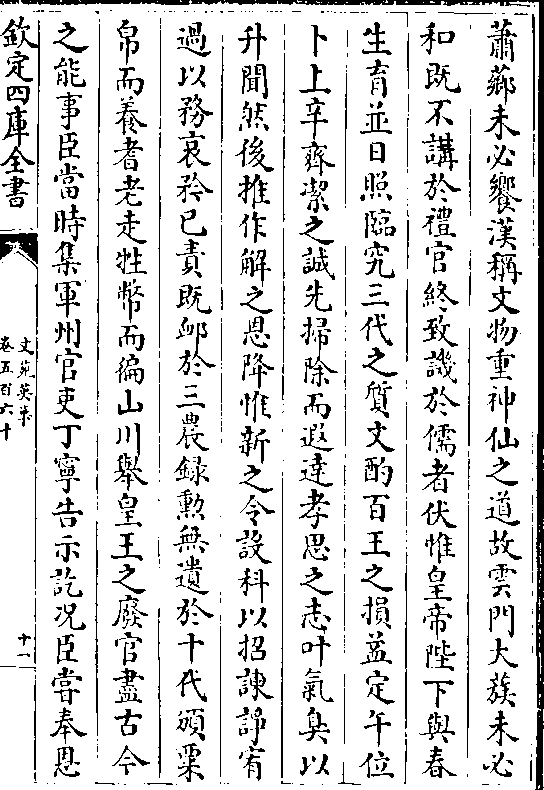 蕭薌未必饗漢稱文物重神仙之道故雲門大蔟未必
和既不講於禮官終致譏於儒者伏惟皇帝陛下與春
生育並日照臨究三代之質文酌百王之損益定午位
卜上辛齊潔之誠先掃除而遐達孝思之志叶氣臭以
升聞然後推作解之恩降惟新之令設科以招諫諍宥
過以務哀矜已責既䘏於三農録勲無遺於十代頒粟
帛而養耆老走牲幣而徧山川舉皇王之廢官盡古今
之能事臣當時集軍州官吏丁寧告示訖况臣嘗奉恩
欽定四庫全書
文苑英華
卷五百六十
十一